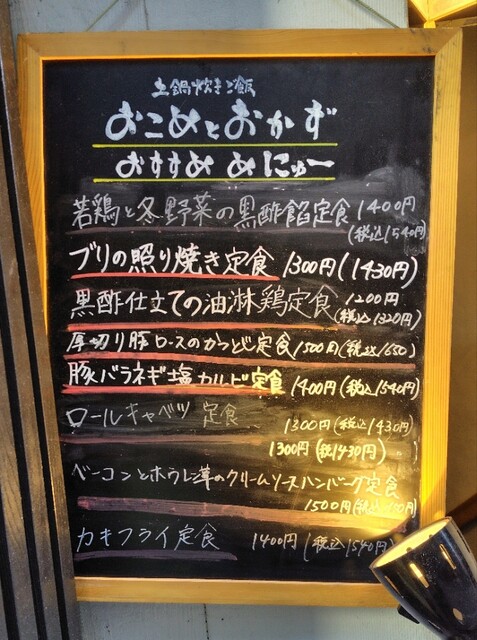 土鍋炊きご飯
おこめとおかず
おすすめめにゅー
若鶏と冬野菜の黒酢餡定食 1400円
(税込1540円)
ブリの照り焼き定食 1300円(1430円)
黒酢仕立ての油淋鶏定食 1200円
(税込1320円)
厚切り豚ロースのかつとじ定食 1500円(税込1650)
豚バラネギ塩カルビ定食 1400円(税込1540円)
ロールキャベツ 定食
1300円(税込1430円)
1300円(税1430円)
ベーコンとホウレン草のクリームソースハンバーグ定食
1500円(税込
カキフライ定食 1400円(税込1540円)